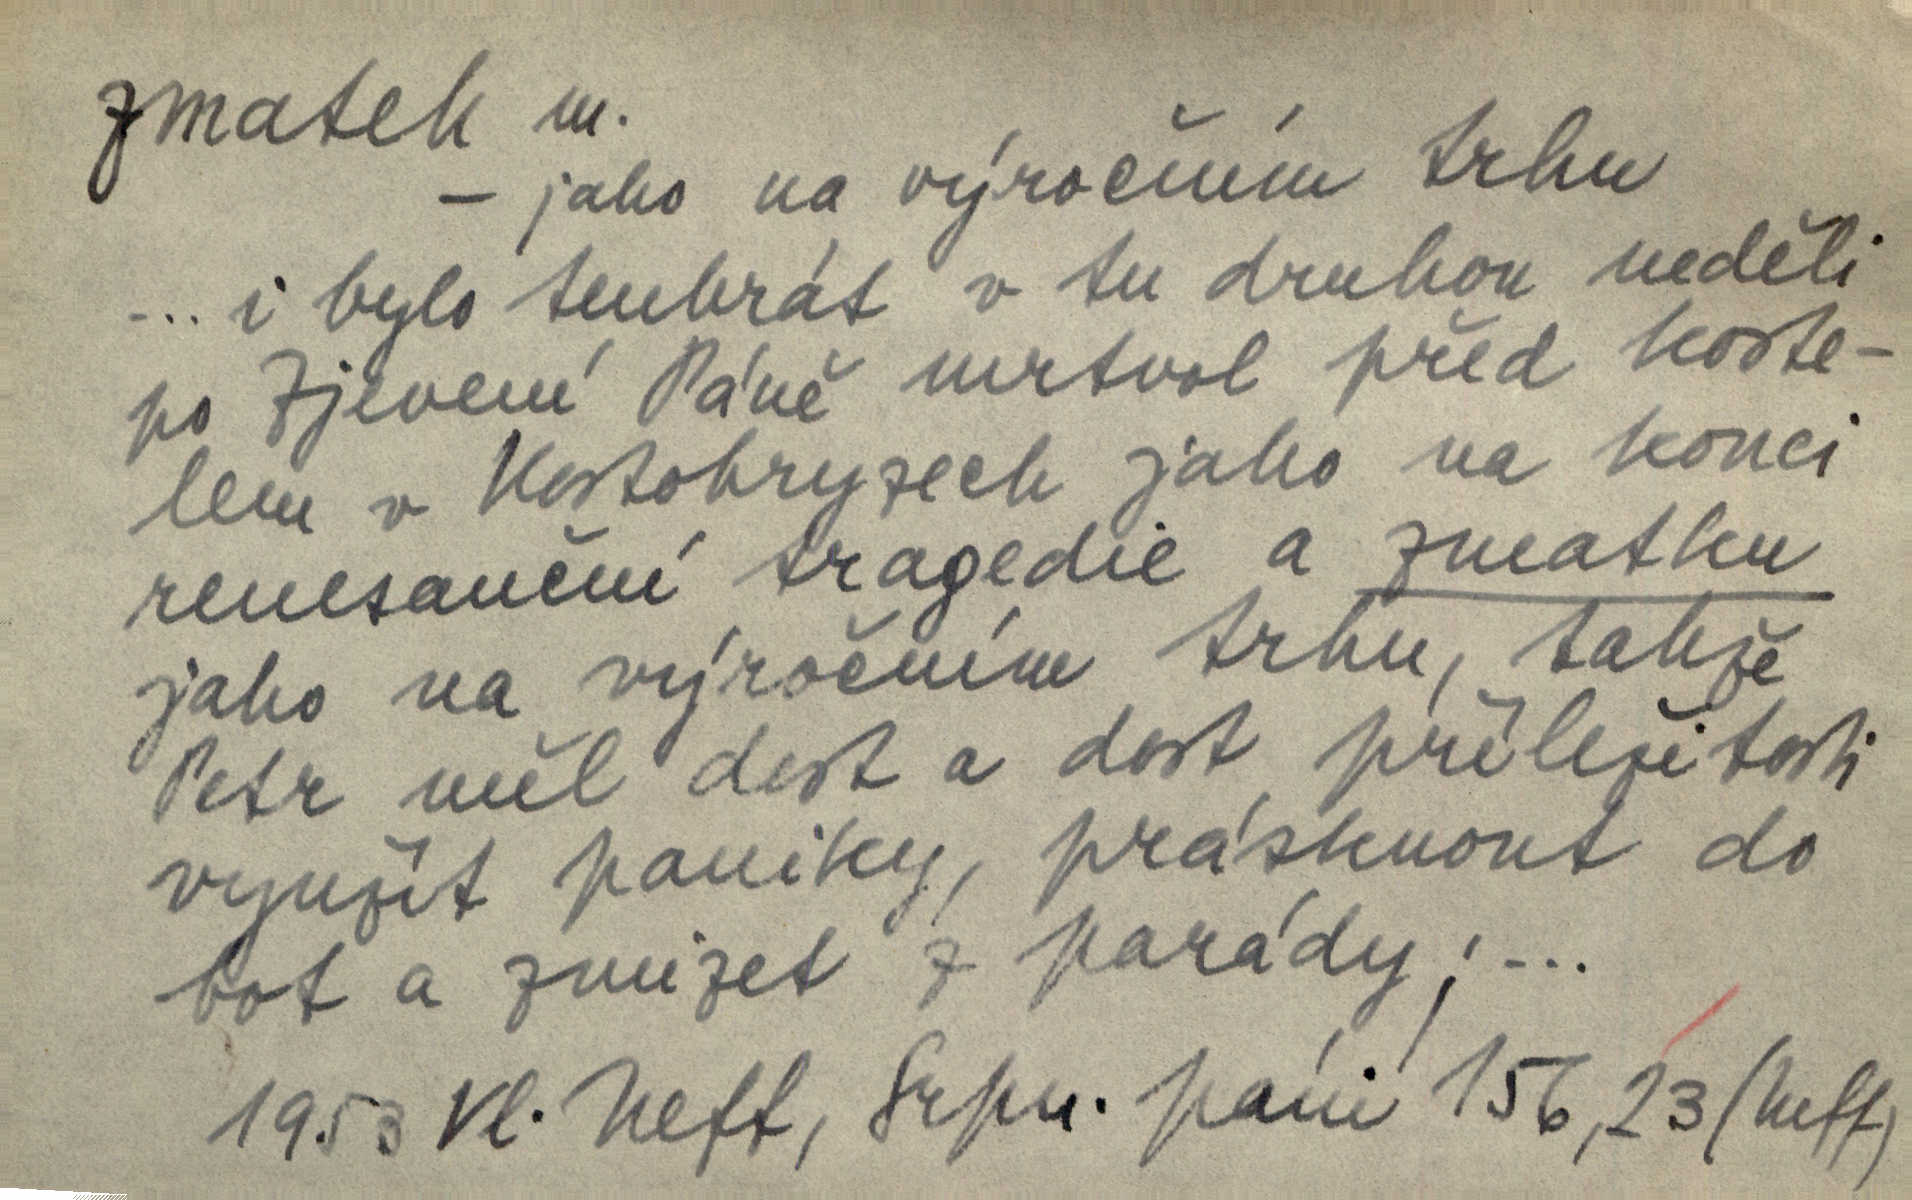 zmatek m.
– jako na výročním trhu
... i bylo tenkrát v tu druhou neděli
po Zjevení Páně mrtvol před koste-
lem v Kostohryzech jako na konci
renesanční tragedie a zmatku
jako na výročním trhu, takže
Petr měl dost a dost příležitosti
využít paniky, prásknout do
bot a zmizet z parády; ...
1953 Vl. Neff, Srpn. páni 156,23 (Neff)